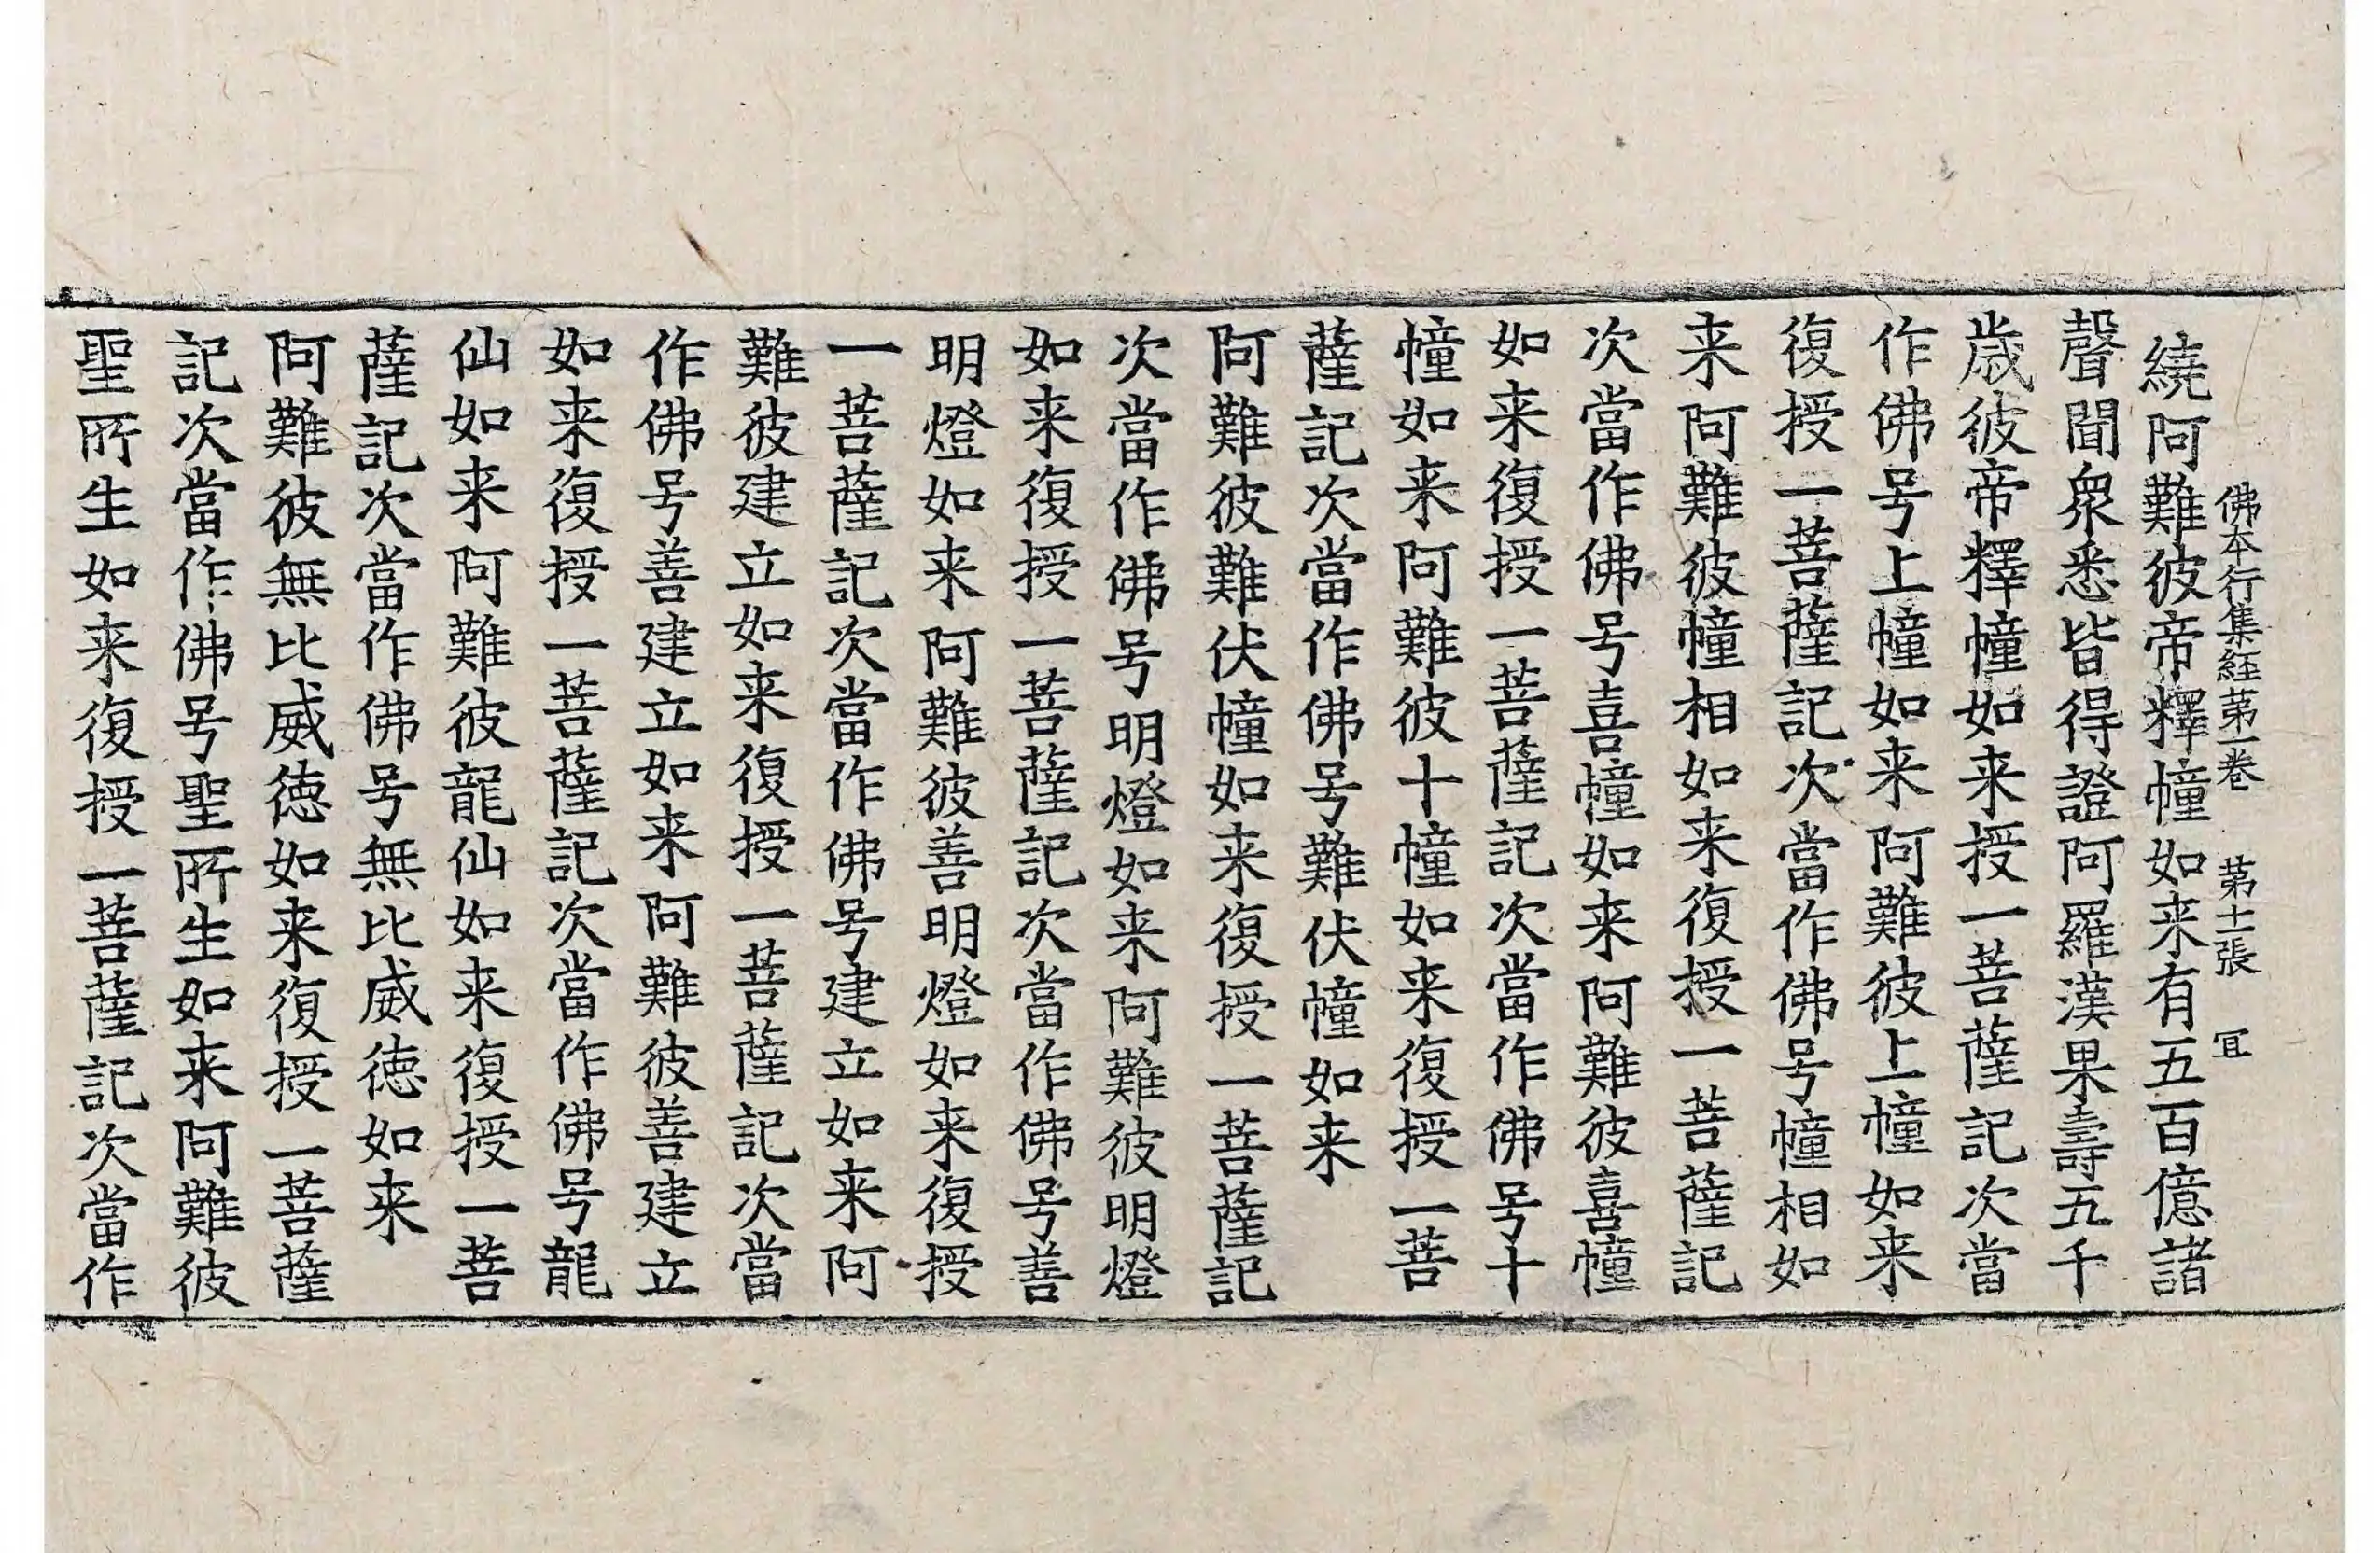 佛本行集経第一巻　第十二張　冝
繞阿難彼帝釋幢如来有五百億諸
聲聞衆悉皆得證阿羅漢果壽五千
歳彼帝釋幢如来授一菩薩記次當
作佛号上幢如来阿難彼上幢如来
復授一菩薩記次當作佛号幢相如
来阿難彼幢相如来復授一菩薩記
次當作佛号喜幢如来阿難彼喜幢
如来復授一菩薩記次當作佛号十
幢如来阿難彼十幢如来復授一菩
薩記次當作佛号難伏幢如来
阿難彼難伏幢如来復授一菩薩記
次當作佛号明燈如来阿難彼明燈
如来復授一菩薩記次當作佛号善
明燈如来阿難彼善明燈如来復授
一菩薩記次當作佛号建立如来阿
難彼建立如来復授一菩薩記次當
作佛号善建立如来阿難彼善建立
如来復授一菩薩記次當作佛号龍
仙如来阿難彼龍仙如来復授一菩
薩記次當作佛号無比威徳如来
阿難彼無比威徳如来復授一菩薩
記次當作佛号聖所生如来阿難彼
聖所生如来復授一菩薩記次當作